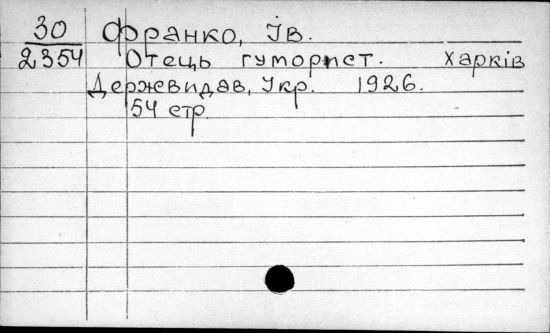 30 Франко, Ів.
2354 Отець гуморист. Харків
Держвидав, Укр. 1926.
54 стр